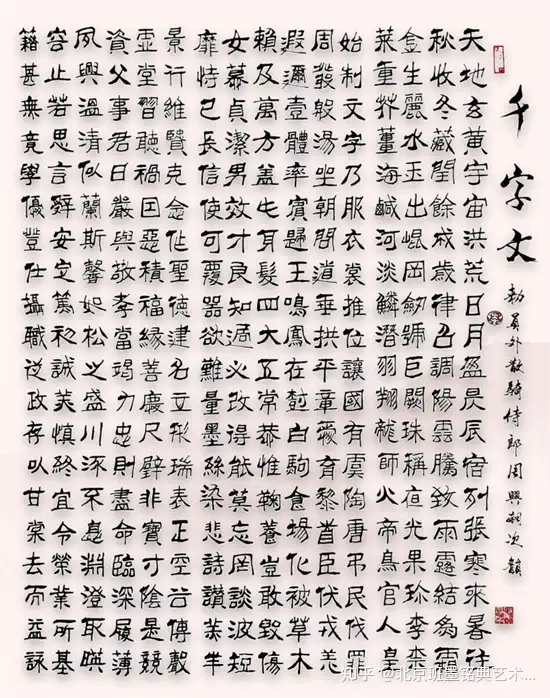 千字文
勅員外散騎侍郎周興嗣次韻
天地玄黃宇宙洪荒日月盈昃辰宿列張寒來暑往
秋收冬藏閏餘成歲律呂調陽雲騰致雨露結為霜
金生麗水玉出崑岡劍號巨闕珠稱夜光果珍李柰
菜重芥薑海鹹河淡鱗潛羽翔龍師火帝鳥官人皇
始制文字乃服衣裳推位讓國有虞陶唐弔民伐罪
周發殷湯坐朝問道垂拱平章愛育黎首臣伏戎羌
遐邇壹體率賓歸王鳴鳳在樹白駒食場化被草木
賴及萬方蓋此身髮四大五常恭惟鞠養豈敢毀傷
女慕貞潔男效才良知過必改得能莫忘罔談彼短
靡恃己長信使可覆器欲難量墨絲染悲詩讚羔羊
景行維賢克念作聖德建名立形端表正空谷傳聲
虛堂習聽禍因惡積福緣善慶尺璧非寶寸陰是競
資父事君曰嚴與敬孝當竭力忠則盡命臨深履薄
夙興溫清似蘭斯馨如松之盛川流不息淵澄取暎
容止若思言辭安定篤初誠美慎終宜令榮業所基
籍甚無竟學優登仕攝職從政存以甘棠去而益詠
知乎 @北京班墨铭典艺术...